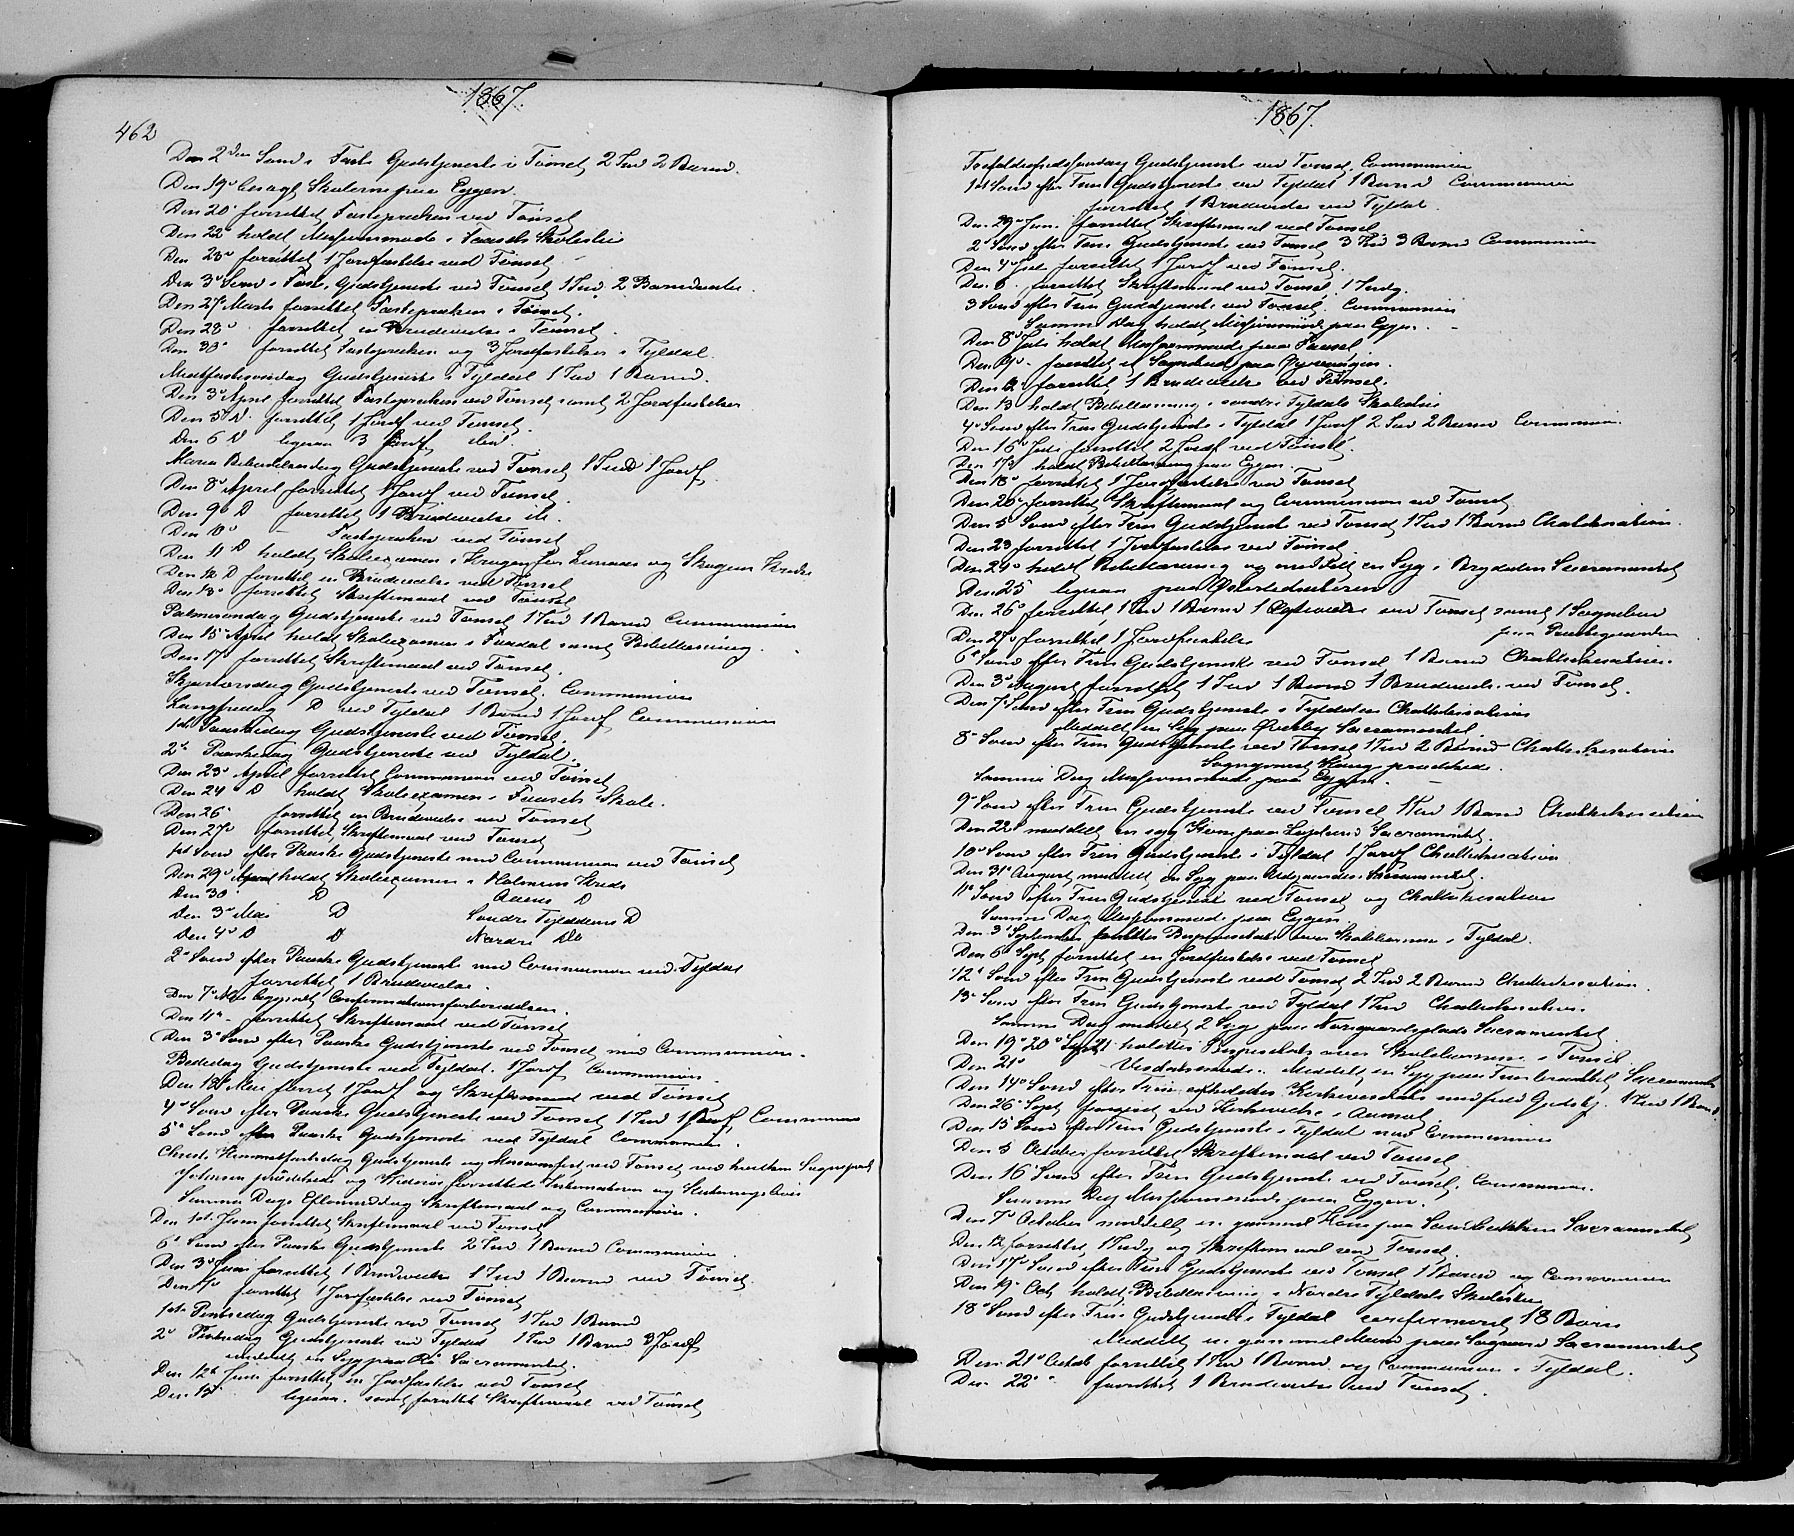 1867.
462
Den 2den Sønd i Faste Gudstjeneste i Tønset 2 Ind 2 Barnd.
Den 19de besøgt Skolerne paa Eggen.
Den 20de forrettet Fastepræken ved Tønset
Den 22de holdt Missionsmøde i Faasets Skolestue
Den 23de forrettet 1 Jordfæstelse ved Tønset
Den 3de Sønd i Faste Gudstjeneste ved Tønset 1 Ind 2 Barnedaabe.
Den 27de Marts forrettet Fasteprækn i Tønset.
Den 28de forrettet en Brudevielse i Tønset.
Den 30 forrettet Fasteprækn og 3 Jordfæstelser i Tyldal.
Midfastesøndag Gudstjeneste i Tyldal 1 Ind 1 Barnd.
Den 3de April forrettet Fasteprækn ved Tønset samt 2 Jordfæstelser
Den 5 D forrettet 1 Jordf ved Tønset.
Den 6 D ligesaa 3 Jordf ibid
Maria Bebudelsesdag Gudstjeneste ved Tønset 1 Ind 1 Jordf.
Den 8de April forrettet 1 Jordf ved Tønset.
Den 9de D forrettet 1 Brudevielse ib.
Den 10de - Fasteprækn ved Tønset
Den 11 D holdt Skoleexamen i og Skogens Kreds
Den 12 D forrettet en Brudevielse ved Tønset
Den 13de forrettet Skriftemaal ved Tønset
Palmesøndag Gudstjeneste ved Tønset 1 Ind 1 Barnd Communion
Den 15de April holdt Skoleexamen i Faadal samt Bibellæsning.
Den 17de forrettet Skriftemaal ved Tønset.
Skjærtorsdag Gudstjeneste ved Tønset. Communion
Langfredag D ved Tyldal 1 Barnd 1 Jordf Communion
1ste Paaskedag Gudstjeneste ved Tønset.
2de Paaskedag Gudstjeneste ved Tyldal.
Den 23de April forrettet Communion ved Tønset
Den 24 D holdt Skoleexamen i Faasets Skole.
Den 26 forrettet en Brudevielse ved Tønset
Den 27de forrettet Skriftemaal ved Tønset
1ste Sønd efter Paaske Gudstjeneste med Communion ved Tønset
Den 29de April holdt Skoleexamen i Holmens Kreds
Den 30 D Aaens D
Den 3de Mai D Søndre Tyldalens D
Den 4de D D Nordre Do
2de Sønd efter Paaske Gudstjeneste med Communion ved Tyldal
forrettet 1 Brudevielse.
Den 7de Mai begyndt Confirmationsforberedelsen.
Den 11te - forrettet Skriftemaal ved Tønset
Den 3de Sønd efter Paaske Gudstjeneste ved Tønset med Communion.
Bededag Gudstjeneste ved Tyldal. 1 Jordf Communion.
Den 18 Mai forret 1 Jordf og Skriftemaal ved Tønset
4de Sønd efter Paaske Gudstjeneste ved Tønset 1 Ind 1 Jordf, Communion
5te Sønd efter Paaske Gudstjeneste ved Tyldal Communion.
Christi Himmelfartsdag Gudstjeneste og Missionsfest ved Tønset ved hvilken Sognepræst
Petersen prædikede og forrettede og
Samme Dags Eftermiddag Skriftemaal og Communion.
Den 1ste Juni forrettet Skriftemaal ved Tønset
6te Sønd efter Paaske Gudstjeneste 2 Ind 1 Barnd Communion
Den 3de Juni forrettet 1 Brudevielse 1 Ind 1 Barnd ved Tønset.
Den 7de forrettet 1 Jordfæstelse ved Tønset
1ste Pintsedag Gudstjeneste ved Tønset 1 Ind 1 Barnd
2de Pintsedag Gudstjeneste ved Tyldal 1 Ind 1 Barnd 3 Jordf
meddelt en Syg paa Sacramentet.
Den 12te Juni forrettet en Jordfæstelse ved Tønset
Den 15 ligesaa. samt forrettet Skriftemaal ved Tønset
1867.
Trefoldighedssøndag Gudstjeneste ved Tønset Communion
1ste Sønd efter Trin Gudstjeneste ved Tyldal 1 Barnd Communion
forrettet 1 Brudevielse ved Tyldal.
Den 29de Jun. forrettet Skriftemaal ved Tønset
2 Sønd efter Trin Gudstjeneste ved Tønset 3 Ind 3 Barnd Communion
Den 4de Juli forrettet 1 Jordf ved Tønset.
Den 6. forrettet Skriftemaal ved Tønset. 1 Indg.
3 Sønd efter Trin Gudstjeneste ved Tønset. Communion
Samme Dag holdt Missionsmøde paa Eggen.
Den 8de Juli holdt Missionsmøde paa Faaset
Den 9de forrettet et Sognebud paa
Den 12 forrettet 1 Brudevielse ved Tønset.
Den 13 holdt Bibellæsning i søndre Tyldals Skolestue
4de Sønd efter Trin Gudstjeneste i Tyldal 1 Jordf 2 Ind 2 Barnd Communion.
Den 16de Juli forrettet 2 Jordf ved Tønset.
Den 17de holdt Bibellæsning paa Eggen.
Den 18de forrettet 1 Jordfæstelse ved Tønset
Den 20de forrettet Skriftemaal og Communion ved Tønset
Den 5 Sønd efter Trin Gudstjeneste ved Tønset 1 Ind 1 Barnd Chatekisation.
Den 23 forrettet 1 Jordfæstelse ved Tønset
Den 24de holdt Bibellæsning og meddelt en Syg i Brydalen Sacramentet
Den 25 ligesaa paa
Den 26de forrettet 1 Ind 1 Barnd 1 ved Tønset samt 1 Sognebud
paa Præstegaarden
Den 27de forrettet 1 Jordfæstelse
6te Sønd efter Trin Gudstjeneste ved Tønset 1 Barnd Chatekisation.
Den 3de August forrettet 1 Ind 1 Barnd 1 Brudeviels. ved Tønset.
Den 7de Sønd efter Trin Gudstjeneste i Tyldalen Chatekisation
Meddelt en Syg paa Sacramentet
8de Sønd efter Trin Gudstjeneste ved Tønset 1 Ind 2 Barnd Chatekisation
Sognepræst prædikede.
Samme Dag Missionsmøde paa Eggen.
9de Sønd efter Trin Gudstjeneste ved Tønset 1 Ind 1 Barnd Chatekisation
Den 22de meddelt en syg Kone paa Sacramentet.
10de Sønd efter Trin Gudstjeneste i Tyldal 1 Jordf Chatekisation
Den 31te August meddelt en Syg paa Sacramentet.
11te Sønd efter Trin Gudstjeneste ved Tønset og Chatekisation
Samme Dag Missionsmøde paa Eggen.
Den 3de September i Tyldal.
Den 6 Sept forrettet en Jordfæstelse ved Tønset
12te Sønd efter Trin Gudstjeneste ved Tønset 2 Ind 2 Barnd Chatekisation.
13de Sønd efter Trin Gudstjeneste ved Tyldal 1 Ind Chatekisation.
Samme Dag meddelt 2 Syge paa Sacramentet.
Den 19de 20de Sept over i Tønset
Den 21de - Meddelt en Syg paa Sacramentet
Den 14de Sønd efter Trin 1 Ind 1 Barnd
Den 26de Sept ved Kirkevielse i
Den 15 Sønd efter Trin Gudstjeneste i Tyldal med Communion
Den 5 October forrettet Skriftemaal ved Tønset
Den 16 Sønd efter Trin Gudstjeneste ved Tønset. Communion.
Samme Dag Missionsmøde paa Eggen.
Den 7de October meddelt en gammel Kone paa Sacramentet
Den 12 forrettet 1 Indg og Skriftemaal ved Tønset.
Den 17de Sønd efter Trin Gudstjeneste ved Tønset 1 Barnd og Communion
Den 19de Oct holdt Bibellæsning i Nordre Tyldals Skolestue
18de Sønd efter Trin Gudstjeneste i Tyldal confirmeret 18 Børn
Meddelt en gammel Mand paa Sacramentet
Den 21de Octob forrettet 1 Ind 1 Barnd og Communion i Tyldal.
Den 22de forrettet 1 Brudevielse ved Tønset.